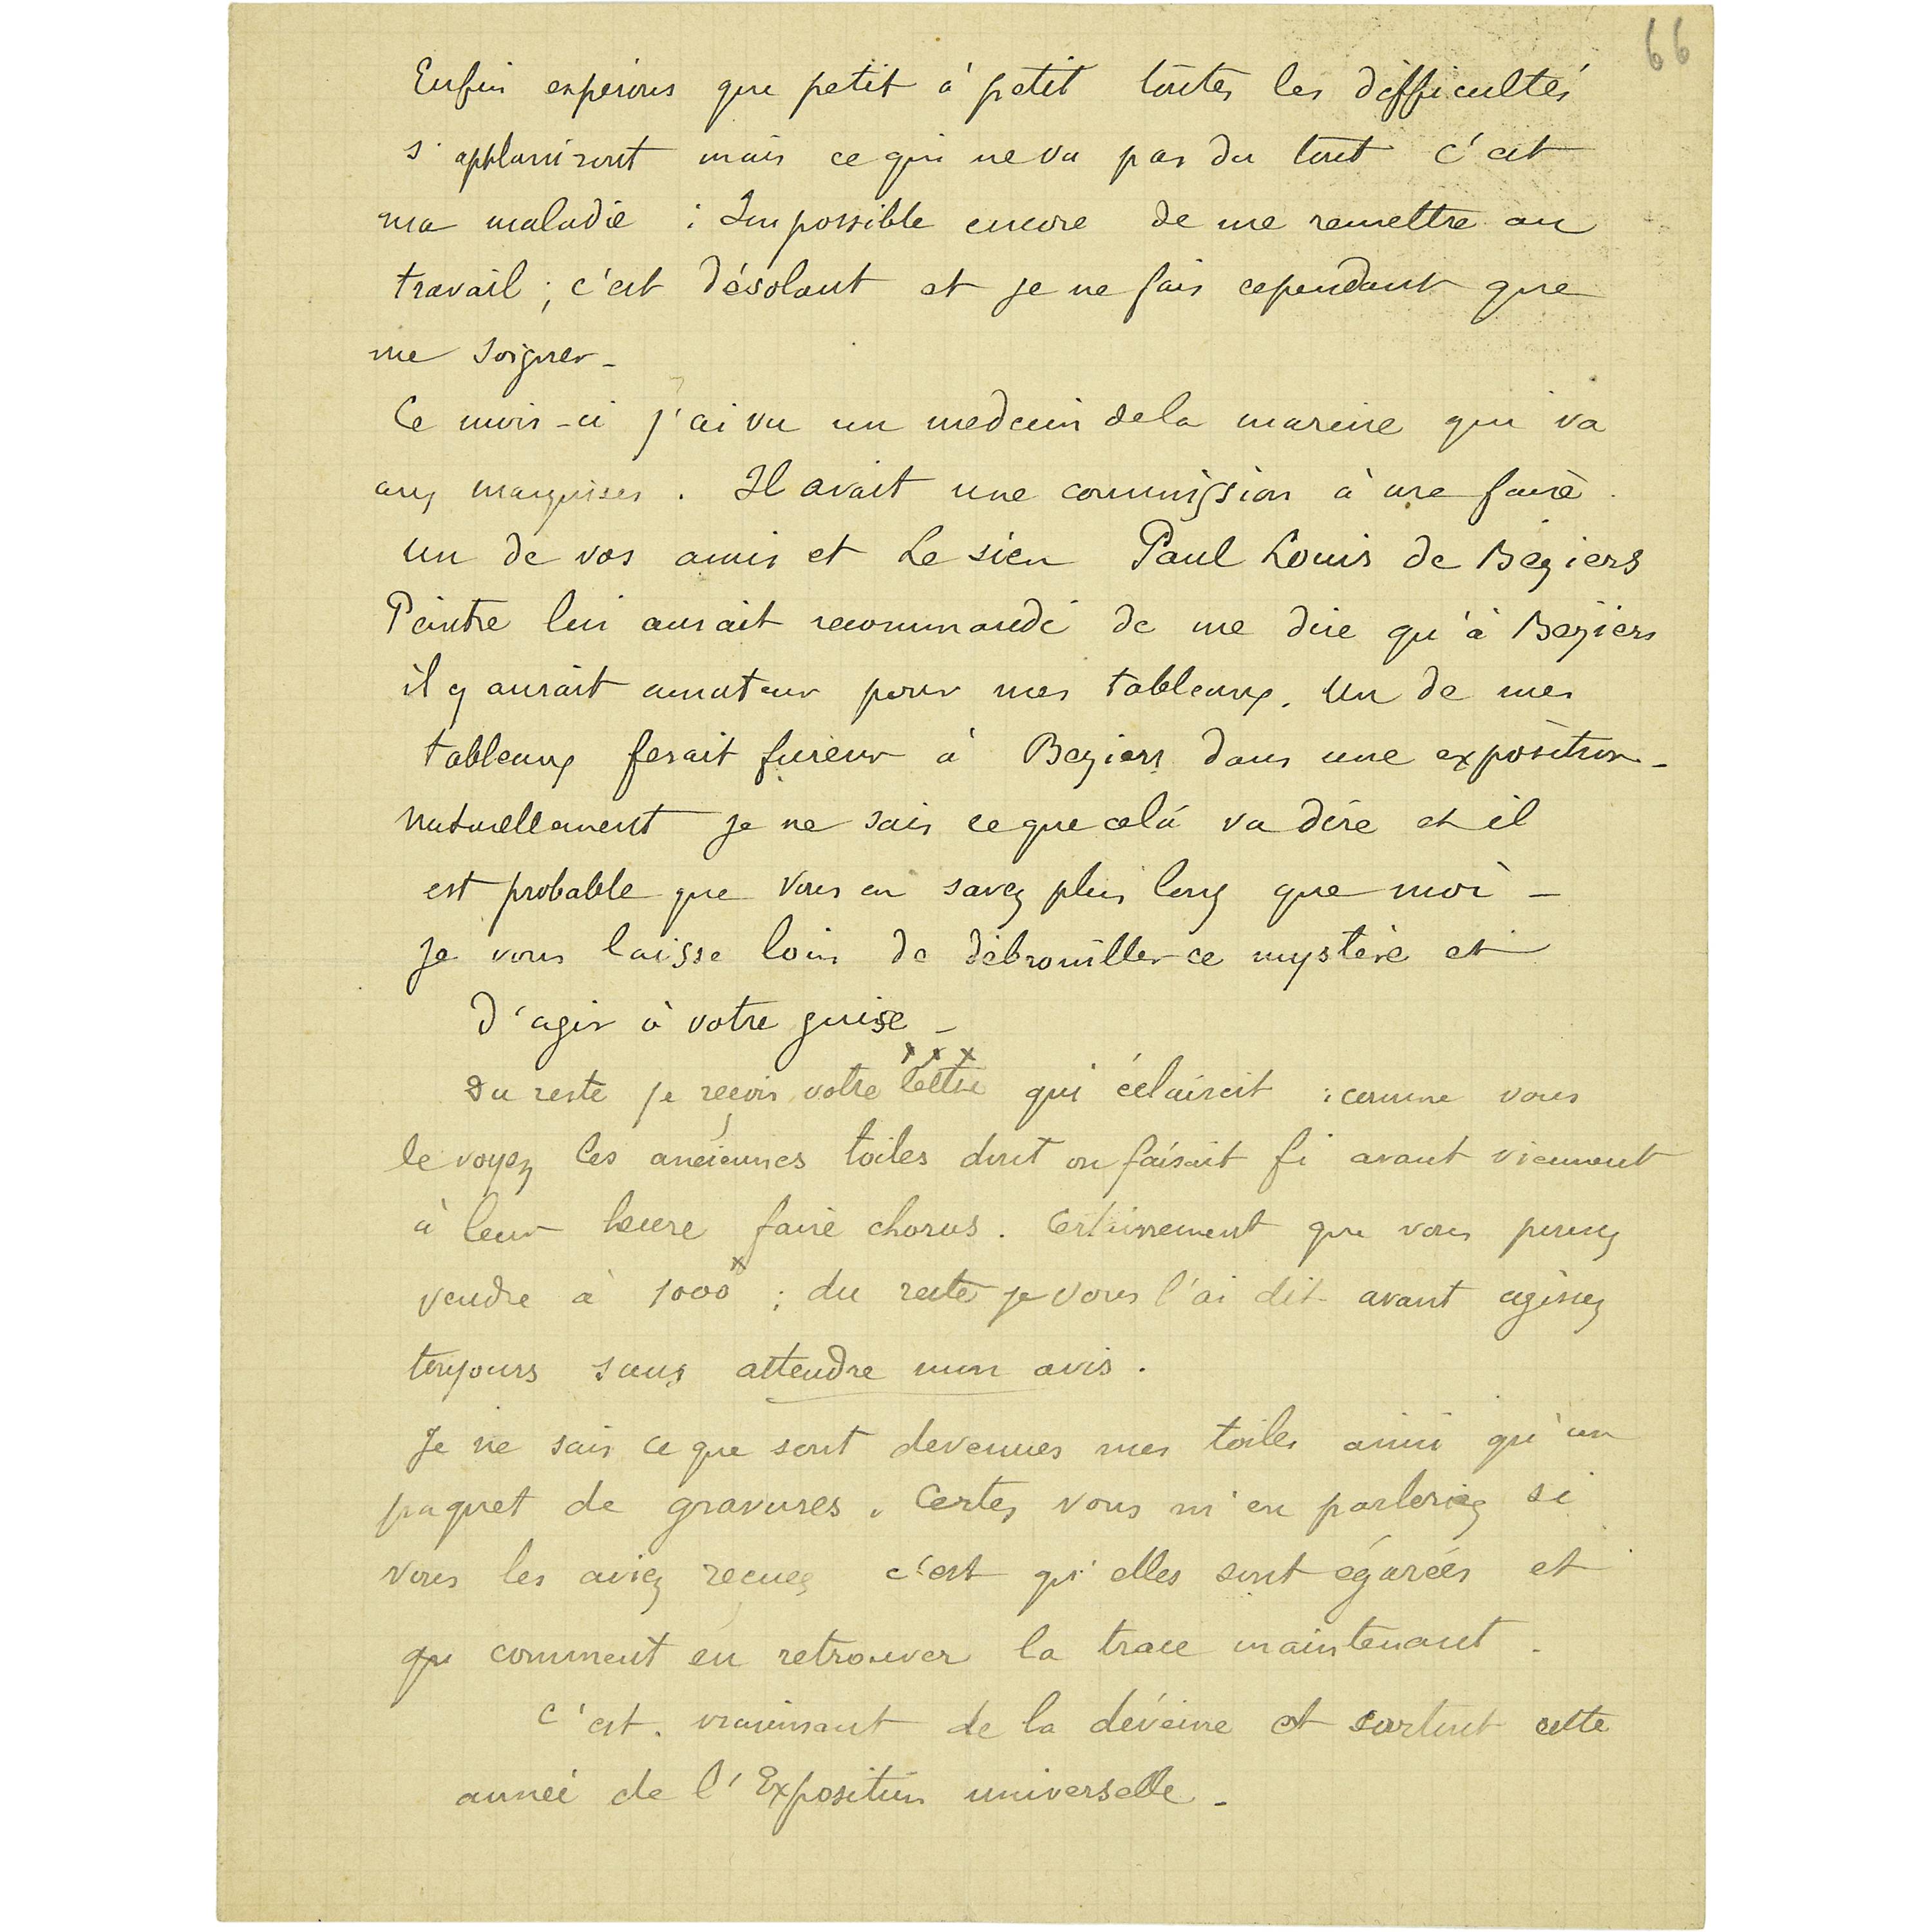 66
Enfin espérons que petit à petit toutes les difficultés
s'applaniront mais ce qui ne va pas du tout c'est
ma maladie : Impossible encore de me remettre au
travail ; c'est désolant et je ne fais cependant que
me soigner _
Ce mois-ci j'ai vu un medecin de la marine qui va
aux marquises . Il avait une commission à me faire .
Un de vos amis et le sien Paul Louis de Beziers
Peintre lui aurait recommandé de me dire qu'à Beziers
il y aurait amateur pour mes tableaux. Un de mes
tableaux ferait fureur à Beziers dans une exposition _
Naturellement je ne sais ce que celà va dire et il
est probable que vous en savez plus long que moi _
Je vous laisse loin de débrouiller ce mystère et
d'agir à votre guise _
x x x
Du reste je reçois votre lettre qui éclaircit : comme vous
le voyez les anciennes toiles dont on faisait fi avant viennent
à leur heure faire chorus . Certainement que vous pouvez
vendre à 1000 x ; du reste je vous l'ai dit avant agissez
toujours sans attendre mon avis .
Je ne sais ce que sont devenues mes toiles ainsi qu'un
paquet de gravures . Certes vous m'en parleriez si
vous les aviez reçues c'est qu'elles sont égarées et
que comment en retrouver la trace maintenant .
C'est vraiment de la déveine et surtout cette
année de l'Exposition universelle _